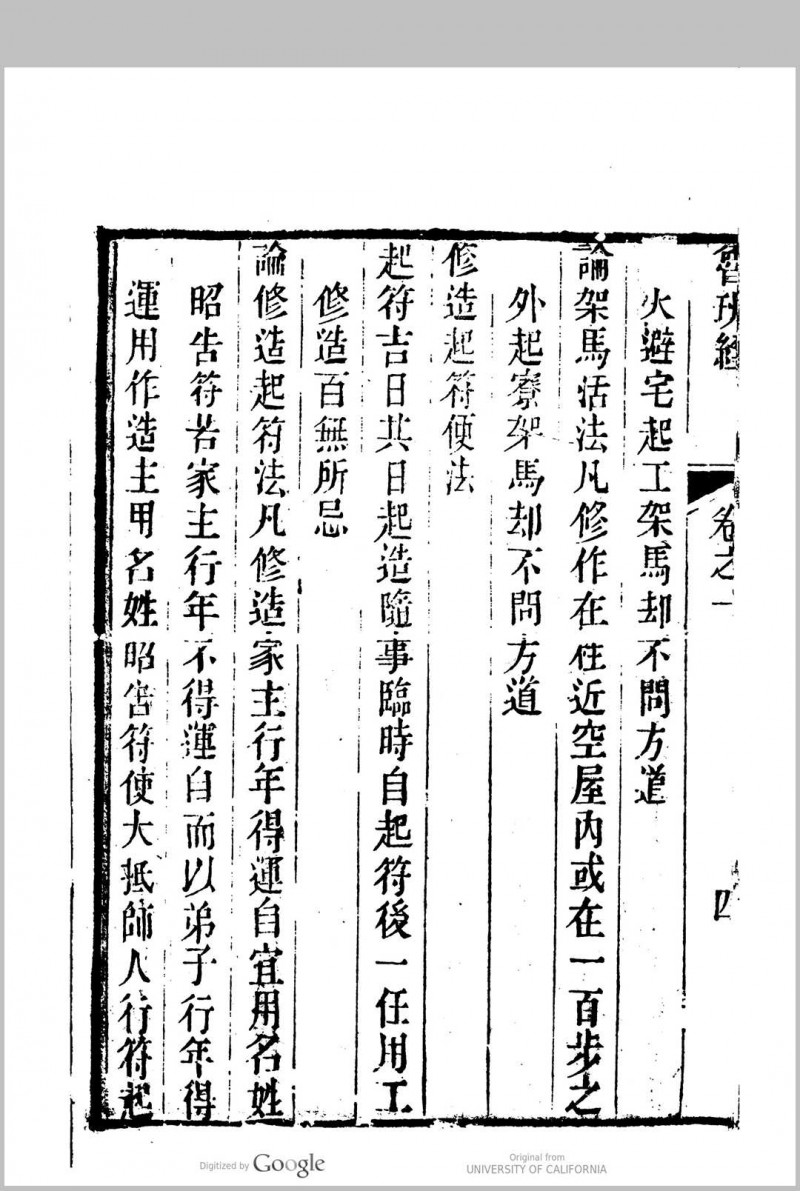 魯班經 卷之一 四
火避宅起工架馬却不問方道
論架馬活法凡修作在住近空屋內或在一百步之
外起寮架馬却不問方道
修造起符便法
起符吉日其日起造隨事臨時自起符後一任用工
修造百無所忌
論修造起符法凡修造家主行年得運自宜用名姓
昭告符若家主行年不得運自而以弟子行年得
運用作造主用名姓昭告符使大抵師人行符起
Digitized by Google
Original from
UNIVERSITY OF CALIFORNIA